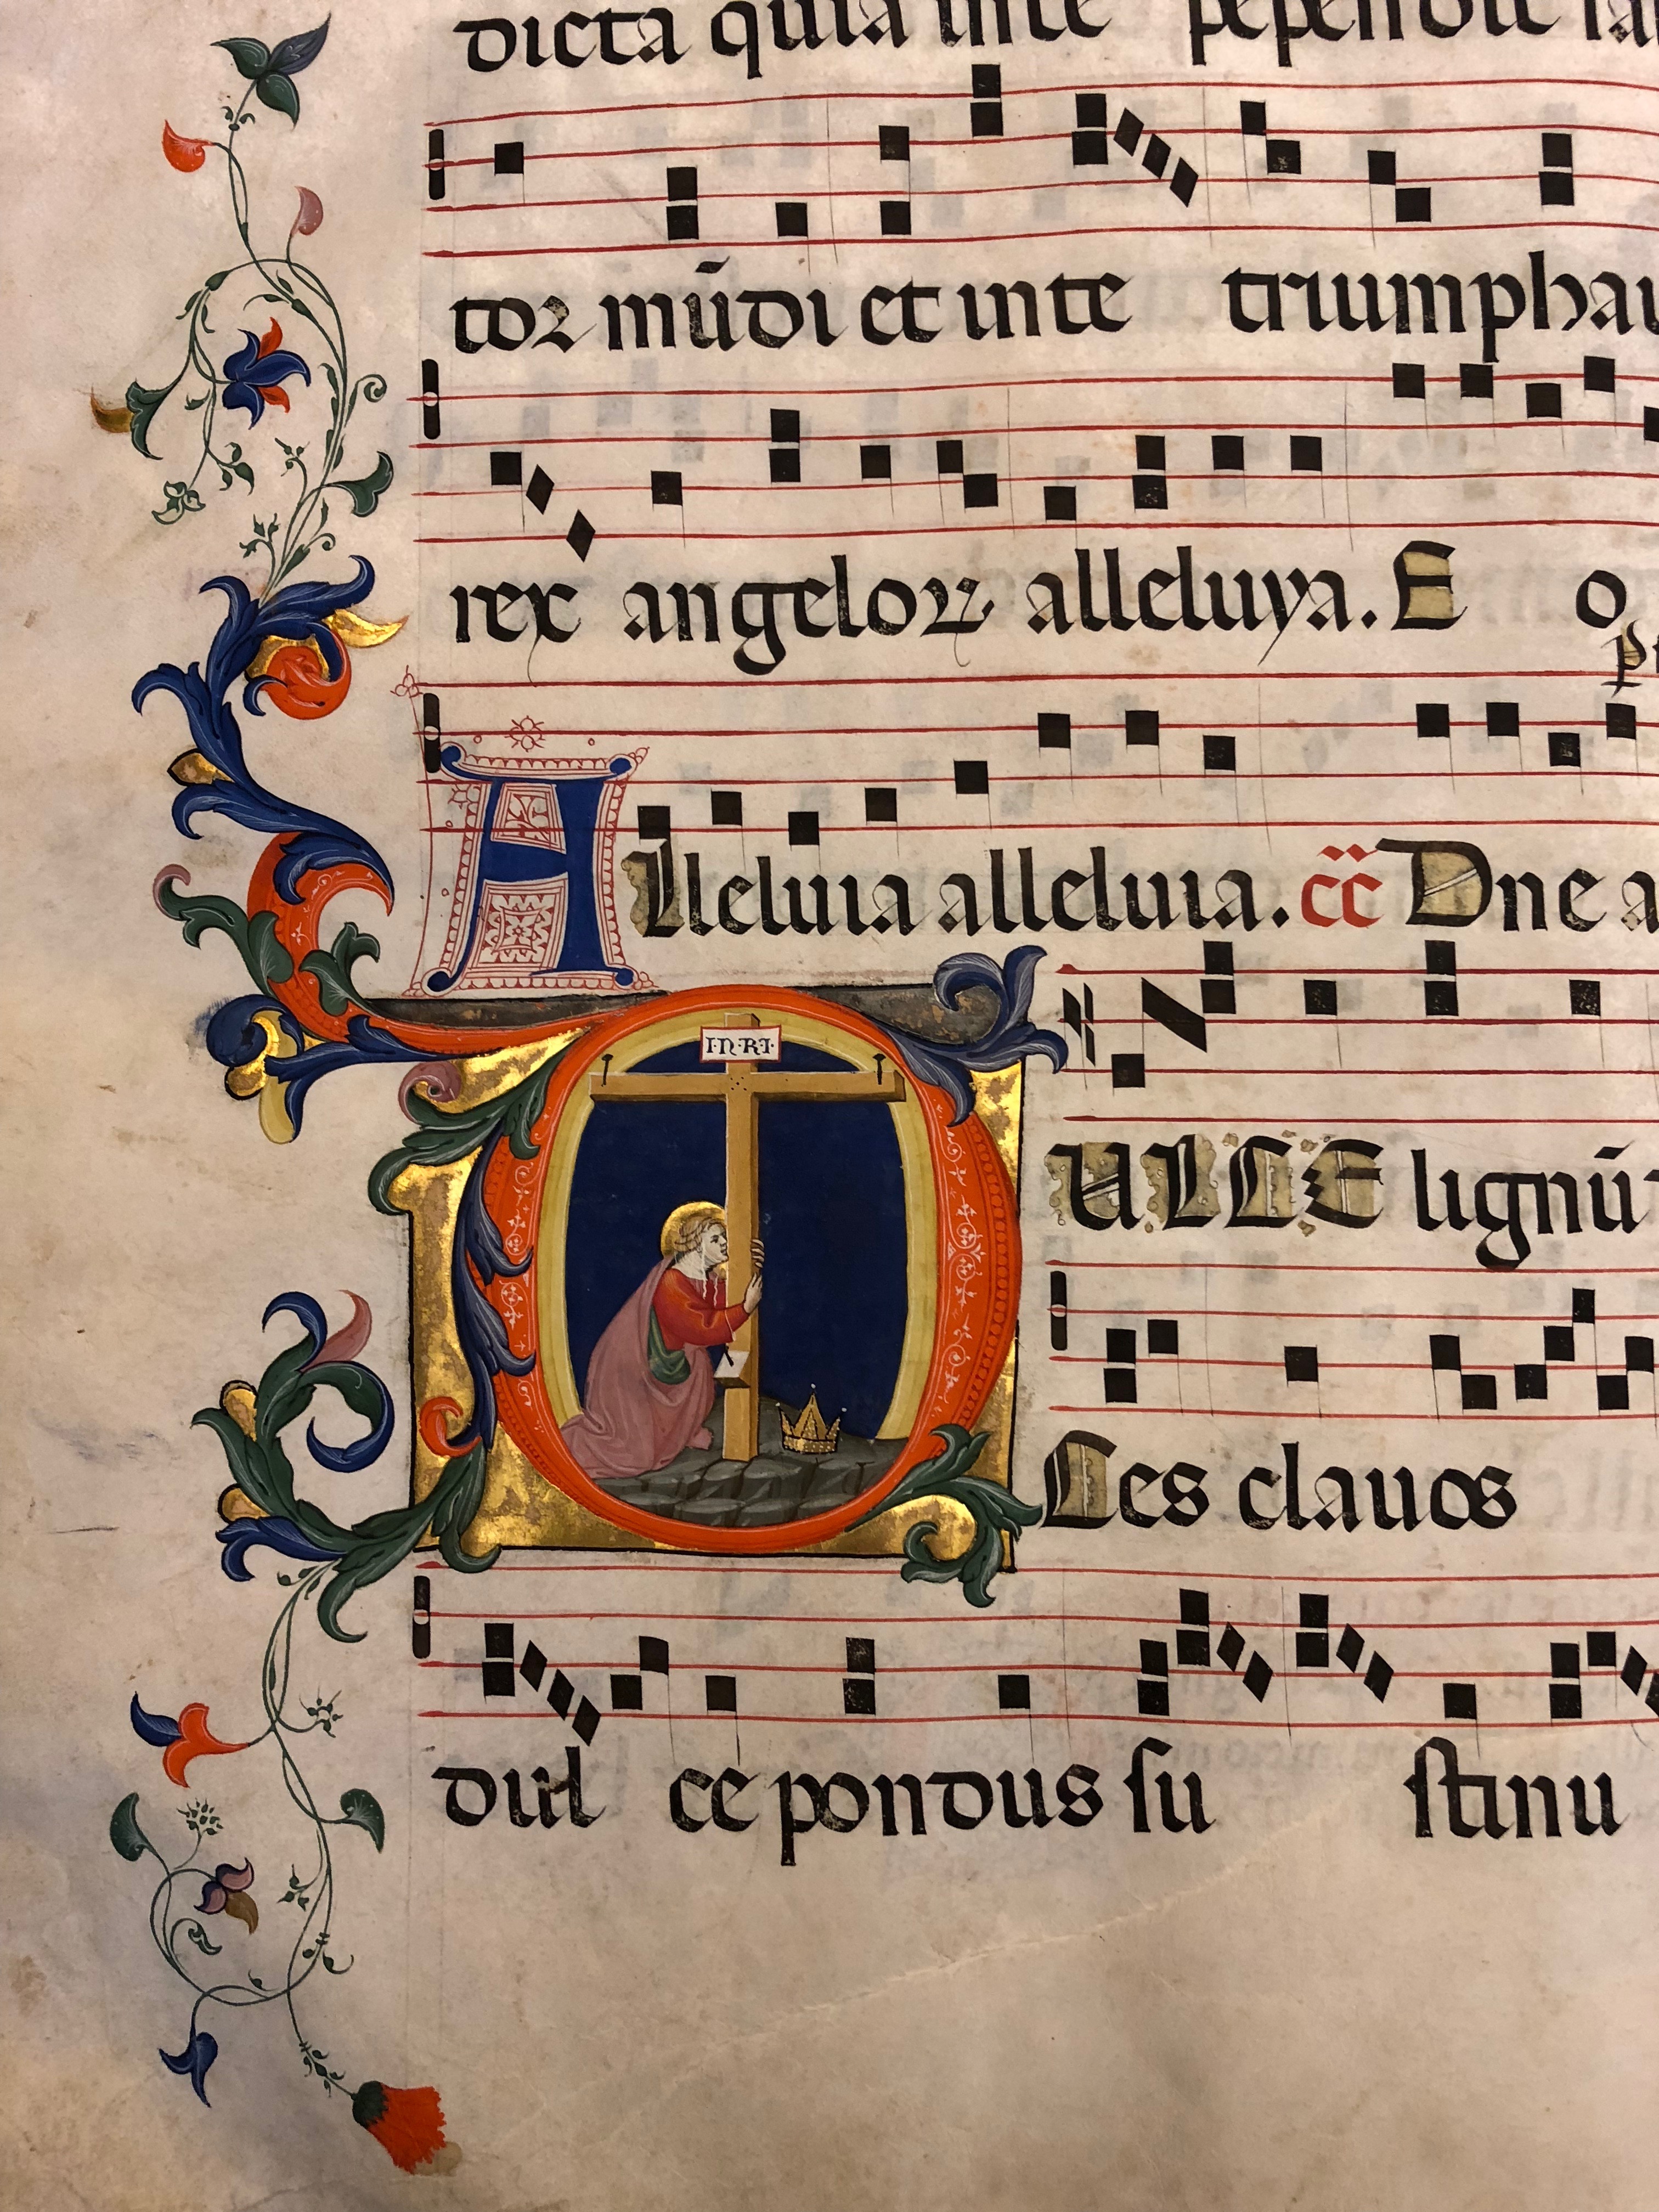 dicta quia inte pependit
tor mūdi et inte triumphau
rex angeloꝝ alleluya. E o
Alleluia alleluia. cc Dne a
I·N·R·I·
ULCE lignū
Ces clauos
dul ce pondus su stinu